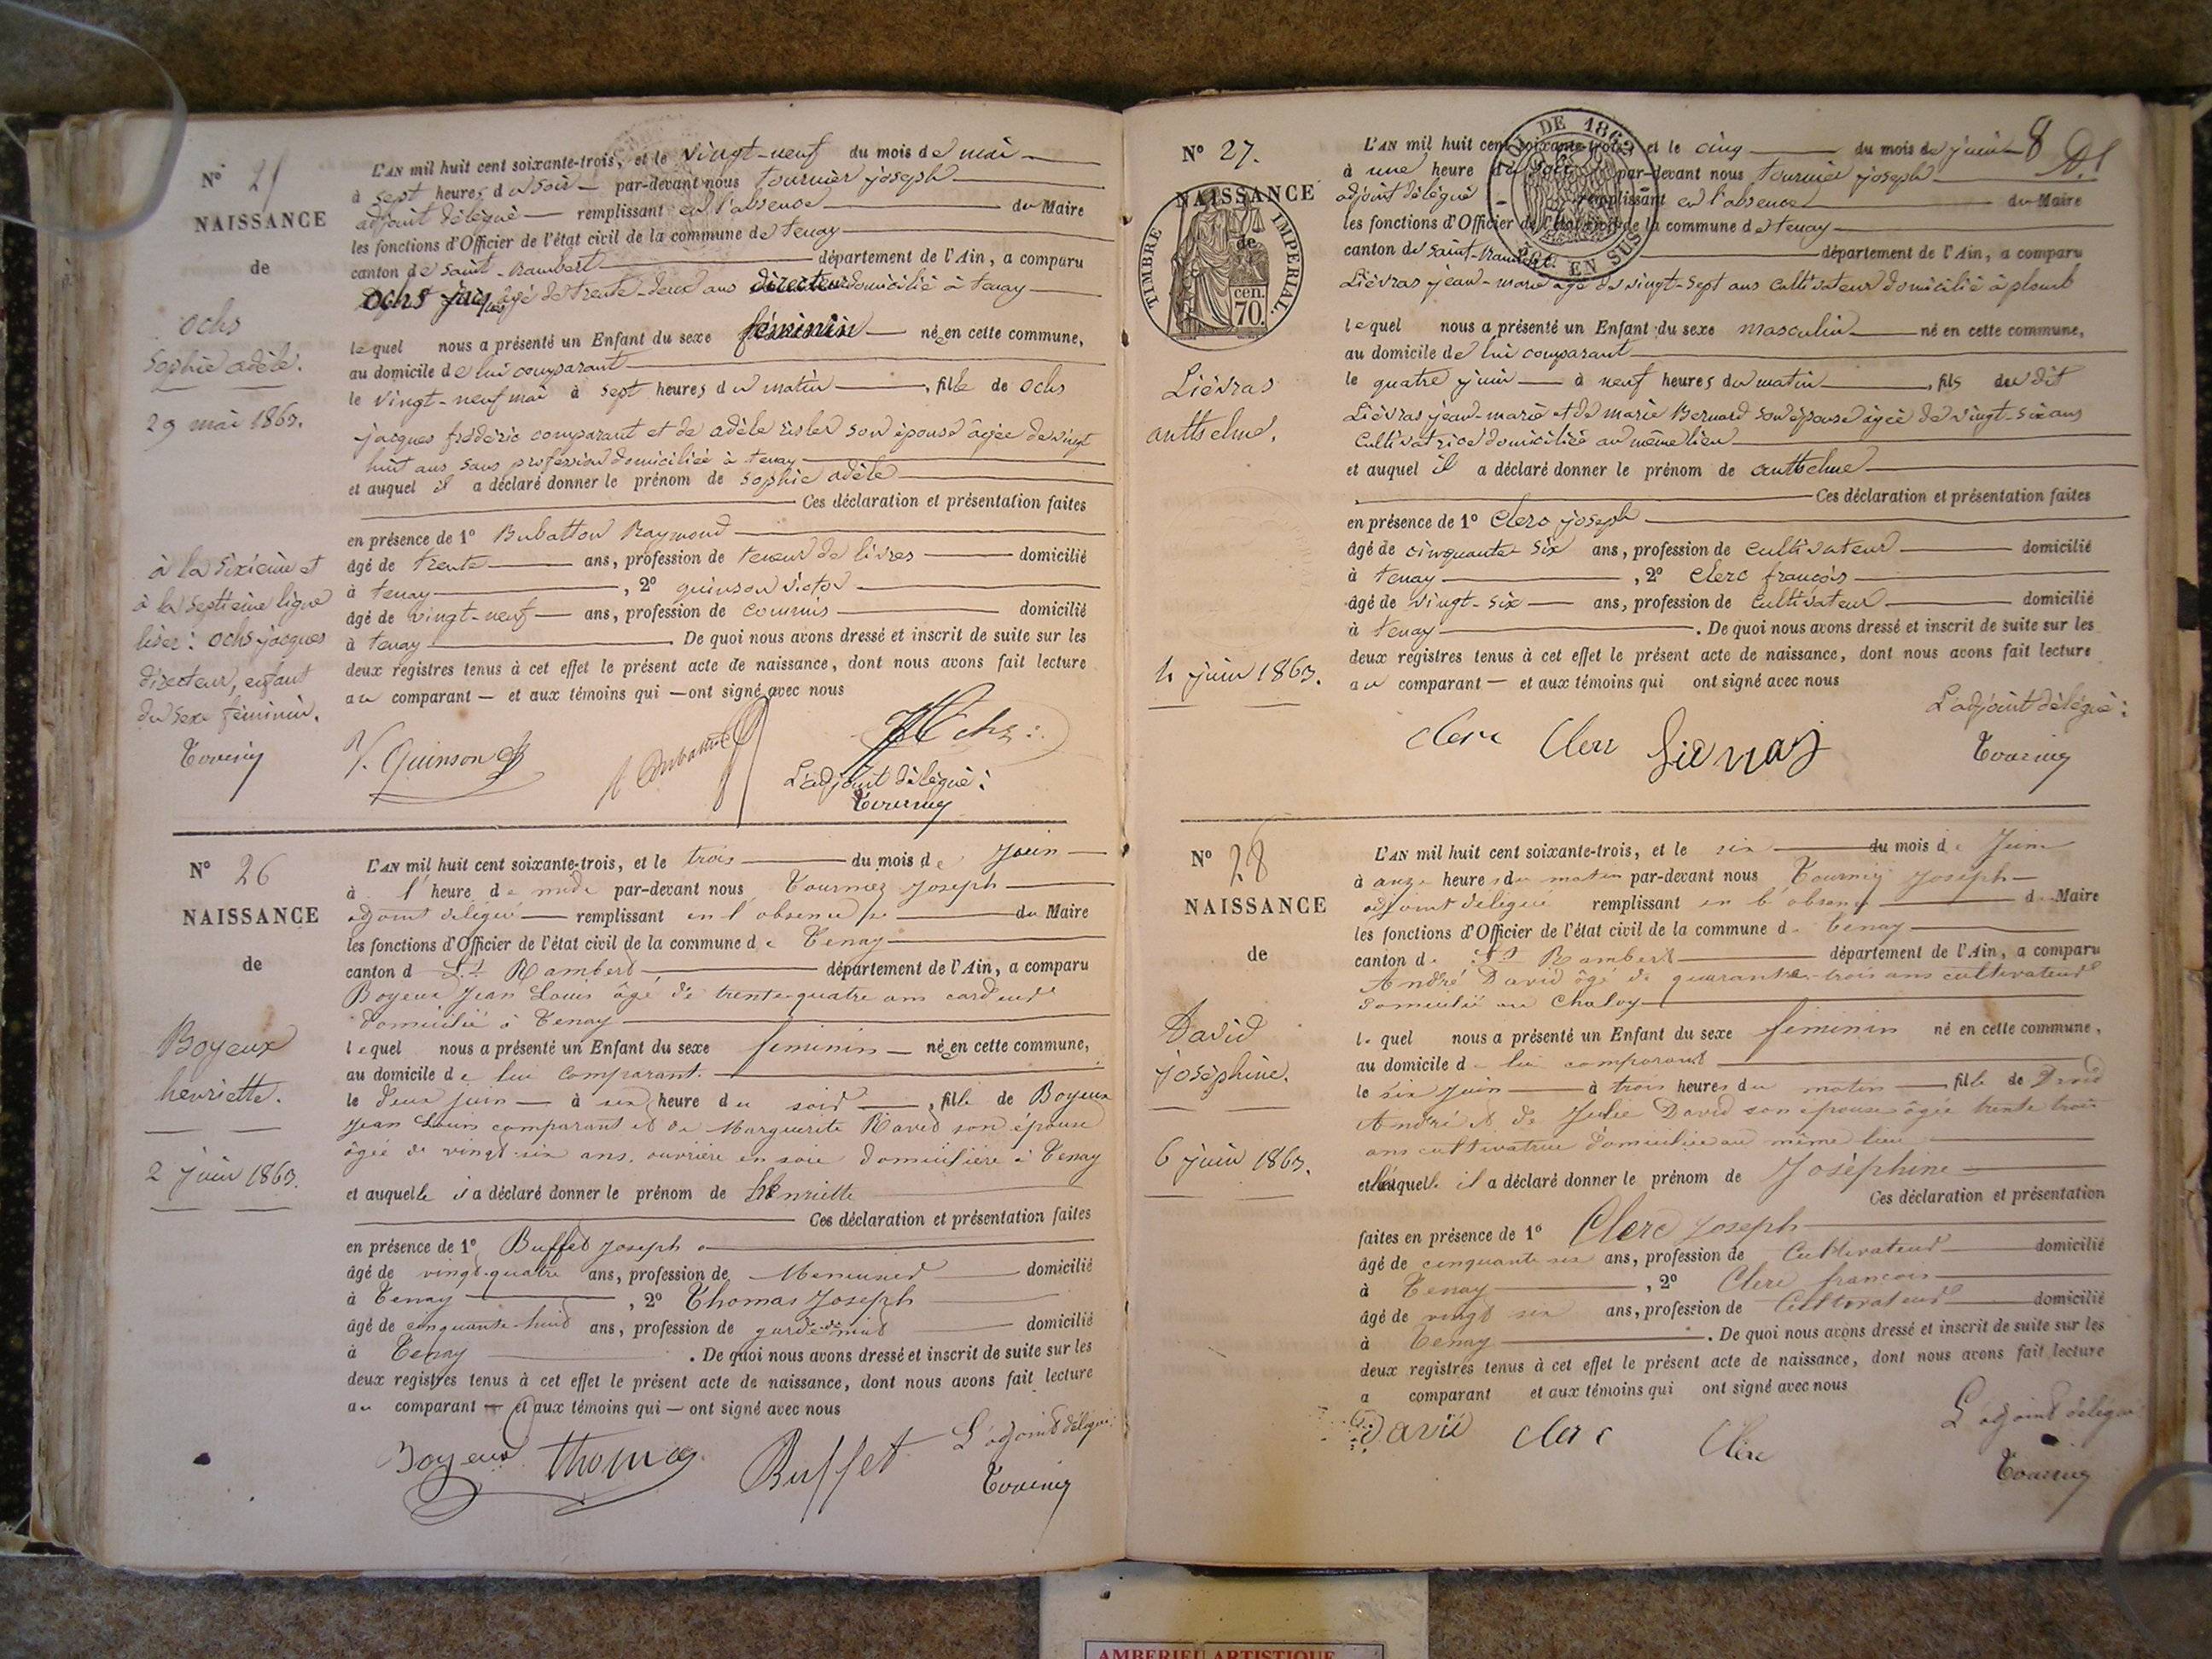 N° 25
NAISSANCE
de
ochs
Sophie adèle.
29 mai 1863.
à la sixième et
à la septième ligne
lisez: ochs jacques
directeur, enfant
du sexe féminin.
L'AN mil huit cent soixante-trois, et le vingt-neuf du mois de mai
à sept heures du soir par-devant nous tournier joseph
adjoint délégué remplissant en l'absence du Maire
les fonctions d'Officier de l'état civil de la commune de tenay
canton de Saint-Rambert département de l'Ain, a comparu
ochs jacques âgé de trente-deux ans directeur domicilié à tenay
lequel nous a présenté un Enfant du sexe féminin née en cette commune,
au domicile de lui comparant
le vingt-neuf mai à sept heures du matin, fille de ochs
jacques frédéric comparant et de adèle risler son épouse âgée de vingt
huit ans sans profession domiciliée à tenay
et auquel il a déclaré donner le prénom de sophie adèle
Ces déclaration et présentation faites
en présence de 1° Raymond
âgé de trente ans, profession de teneur de livres domicilié
à tenay, 2° quinson victor
âgé de vingt-neuf ans, profession de commis domicilié
à tenay De quoi nous avons dressé et inscrit de suite sur les
deux registres tenus à cet effet le présent acte de naissance, dont nous avons fait lecture
au comparant et aux témoins qui ont signé avec nous
V. Quinson
L'adjoint délégué:
N° 26
NAISSANCE
de
Boyeux
henriette.
2 juin 1863.
L'AN mil huit cent soixante-trois, et le trois du mois de Juin
à l'heure de midi par-devant nous Tournier Joseph
adjoint délégué remplissant en l'absence du Maire
les fonctions d'Officier de l'état civil de la commune de Tenay
canton d St Rambert département de l'Ain, a comparu
Boyeux Jean Louis âgé de trente-quatre ans cardeur
domicilié à Tenay
lequel nous a présenté un Enfant du sexe feminin née en cette commune,
au domicile de lui comparant.
le deux juin à six heure du soir, fille de Boyeux
Jean Louis comparant et de Marguerite Ravet son épouse
âgée de vingt six ans, ouvrière en soie domicilière à Tenay
et auquelle il a déclaré donner le prénom de Henriette
Ces déclaration et présentation faites
en présence de 1° Buffet Joseph
âgé de vingt-quatre ans, profession de Menuisier domicilié
à Tenay, 2° Thomas Joseph
âgé de cinquante-huit ans, profession de garde de nuit domicilié
à Tenay. De quoi nous avons dressé et inscrit de suite sur les
deux registres tenus à cet effet le présent acte de naissance, dont nous avons fait lecture
au comparant et aux témoins qui ont signé avec nous
Boyeux Thomas Buffet L'adjoint délégué
8
N° 27.
NAISSANCE
de
TIMBRE IMPERIAL.
cen.
70.
LOI DE 1862
EN SUS
Liévras
antthelme.
4 juin 1863.
L'AN mil huit cent soixante-trois, et le cinq du mois de juin
à une heure du soir par-devant nous tournier joseph
adjoint délégué remplissant en l'absence du Maire
les fonctions d'Officier de l'état civil de la commune de tenay
canton de Saint-Rambert département de l'Ain, a comparu
Liévras jean-marie âgé de vingt-sept ans cultivateur domicilié à plomb
lequel nous a présenté un Enfant du sexe masculin né en cette commune,
au domicile de lui comparant
le quatre juin à neuf heures du matin, fils du dit
Liévras jean-marie et de marie Bernard son épouse âgée de vingt-six ans
cultivatrice domiciliée au même lieu
et auquel il a déclaré donner le prénom de antthelme
Ces déclaration et présentation faites
en présence de 1° Clerc joseph
âgé de cinquante-six ans, profession de cultivateur domicilié
à tenay, 2° Clerc françois
âgé de vingt-six ans, profession de cultivateur domicilié
à tenay. De quoi nous avons dressé et inscrit de suite sur les
deux registres tenus à cet effet le présent acte de naissance, dont nous avons fait lecture
au comparant et aux témoins qui ont signé avec nous
L'adjoint délégué:
Clerc Clerc
N° 28
NAISSANCE
de
David
joséphine.
6 juin 1863.
L'AN mil huit cent soixante-trois, et le six du mois de Juin
à onze heures du matin par-devant nous Tournier Joseph
adjoint délégué remplissant en l'absence d Maire
les fonctions d'Officier de l'état civil de la commune d Tenay
canton de St Rambert département de l'Ain, a comparu
André David âgé de quarante-trois ans cultivateur
domicilié au Chaloy
lequel nous a présenté un Enfant du sexe feminin né en cette commune,
au domicile de lui comparant
le six Juin à trois heures du matin fille de David
André et de Julie David son épouse âgée trente trois
ans cultivatrice domiciliée au même lieu
et auquelle il a déclaré donner le prénom de Joséphine
Ces déclaration et présentation
faites en présence de 1° Clerc Joseph
âgé de cinquante six ans, profession de Cultivateur domicilié
à Tenay, 2° Clerc francois
âgé de vingt six ans, profession de Cultivateur domicilié
à Tenay. De quoi nous avons dressé et inscrit de suite sur les
deux registres tenus à cet effet le présent acte de naissance, dont nous avons fait lecture
a comparant et aux témoins qui ont signé avec nous
David Clerc Clerc L'adjoint délégué
AMBERIEU ARTISTIQUE